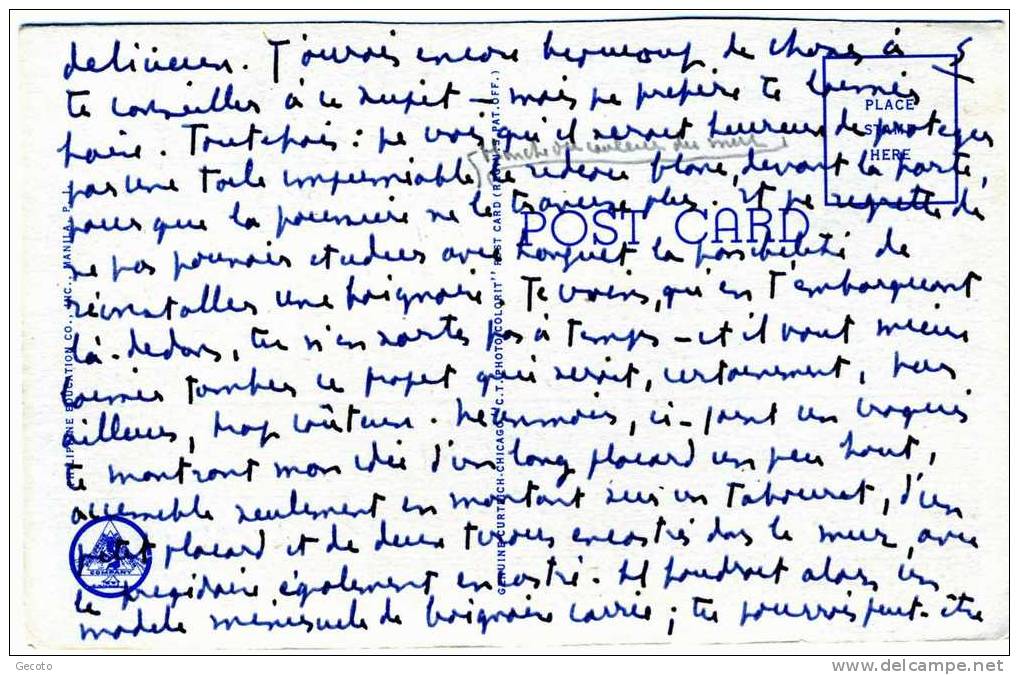 délicieux. J'aurais encore beaucoup de choses à 5
te conseiller à ce sujet — mais je préfère te laisser
faire. Toutefois : je crois qu'il serait heureux de protéger
blanche de couleur du mur
par une toile imperméable le rideau blanc, devant la porte,
pour que la poussière ne le traverse plus. Et je regrette de
ne pas pouvoir étudier avec la possibilité de
réinstaller une baignoire. Je crains, qu'en t'embarquant
là-dedans, tu n'en sortes pas à temps — et il vaut mieux
laisser tomber ce projet qui serait, certainement, par
ailleurs, trop coûteux. Néanmoins, ci-joint un croquis
te montrant mon idée d'un long placard un peu haut,
accessible seulement en montant sur un tabouret, d'un
petit placard et de deux tiroirs encastrés dans le mur, avec
le frigidaire également encastré. Il faudrait alors un
modèle minuscule de baignoire carrée ; tu pourrais peut-être
PLACE
STAMP
HERE
POST CARD
PHILIPPINE EDUCATION CO., INC., MANILA, P. I.
GENUINE CURTEICH-CHICAGO "C.T. PHOTO COLORIT" POST CARD (REG. U.S. PAT. OFF.)
COMPANY
Gecoto
www.delcampe.net